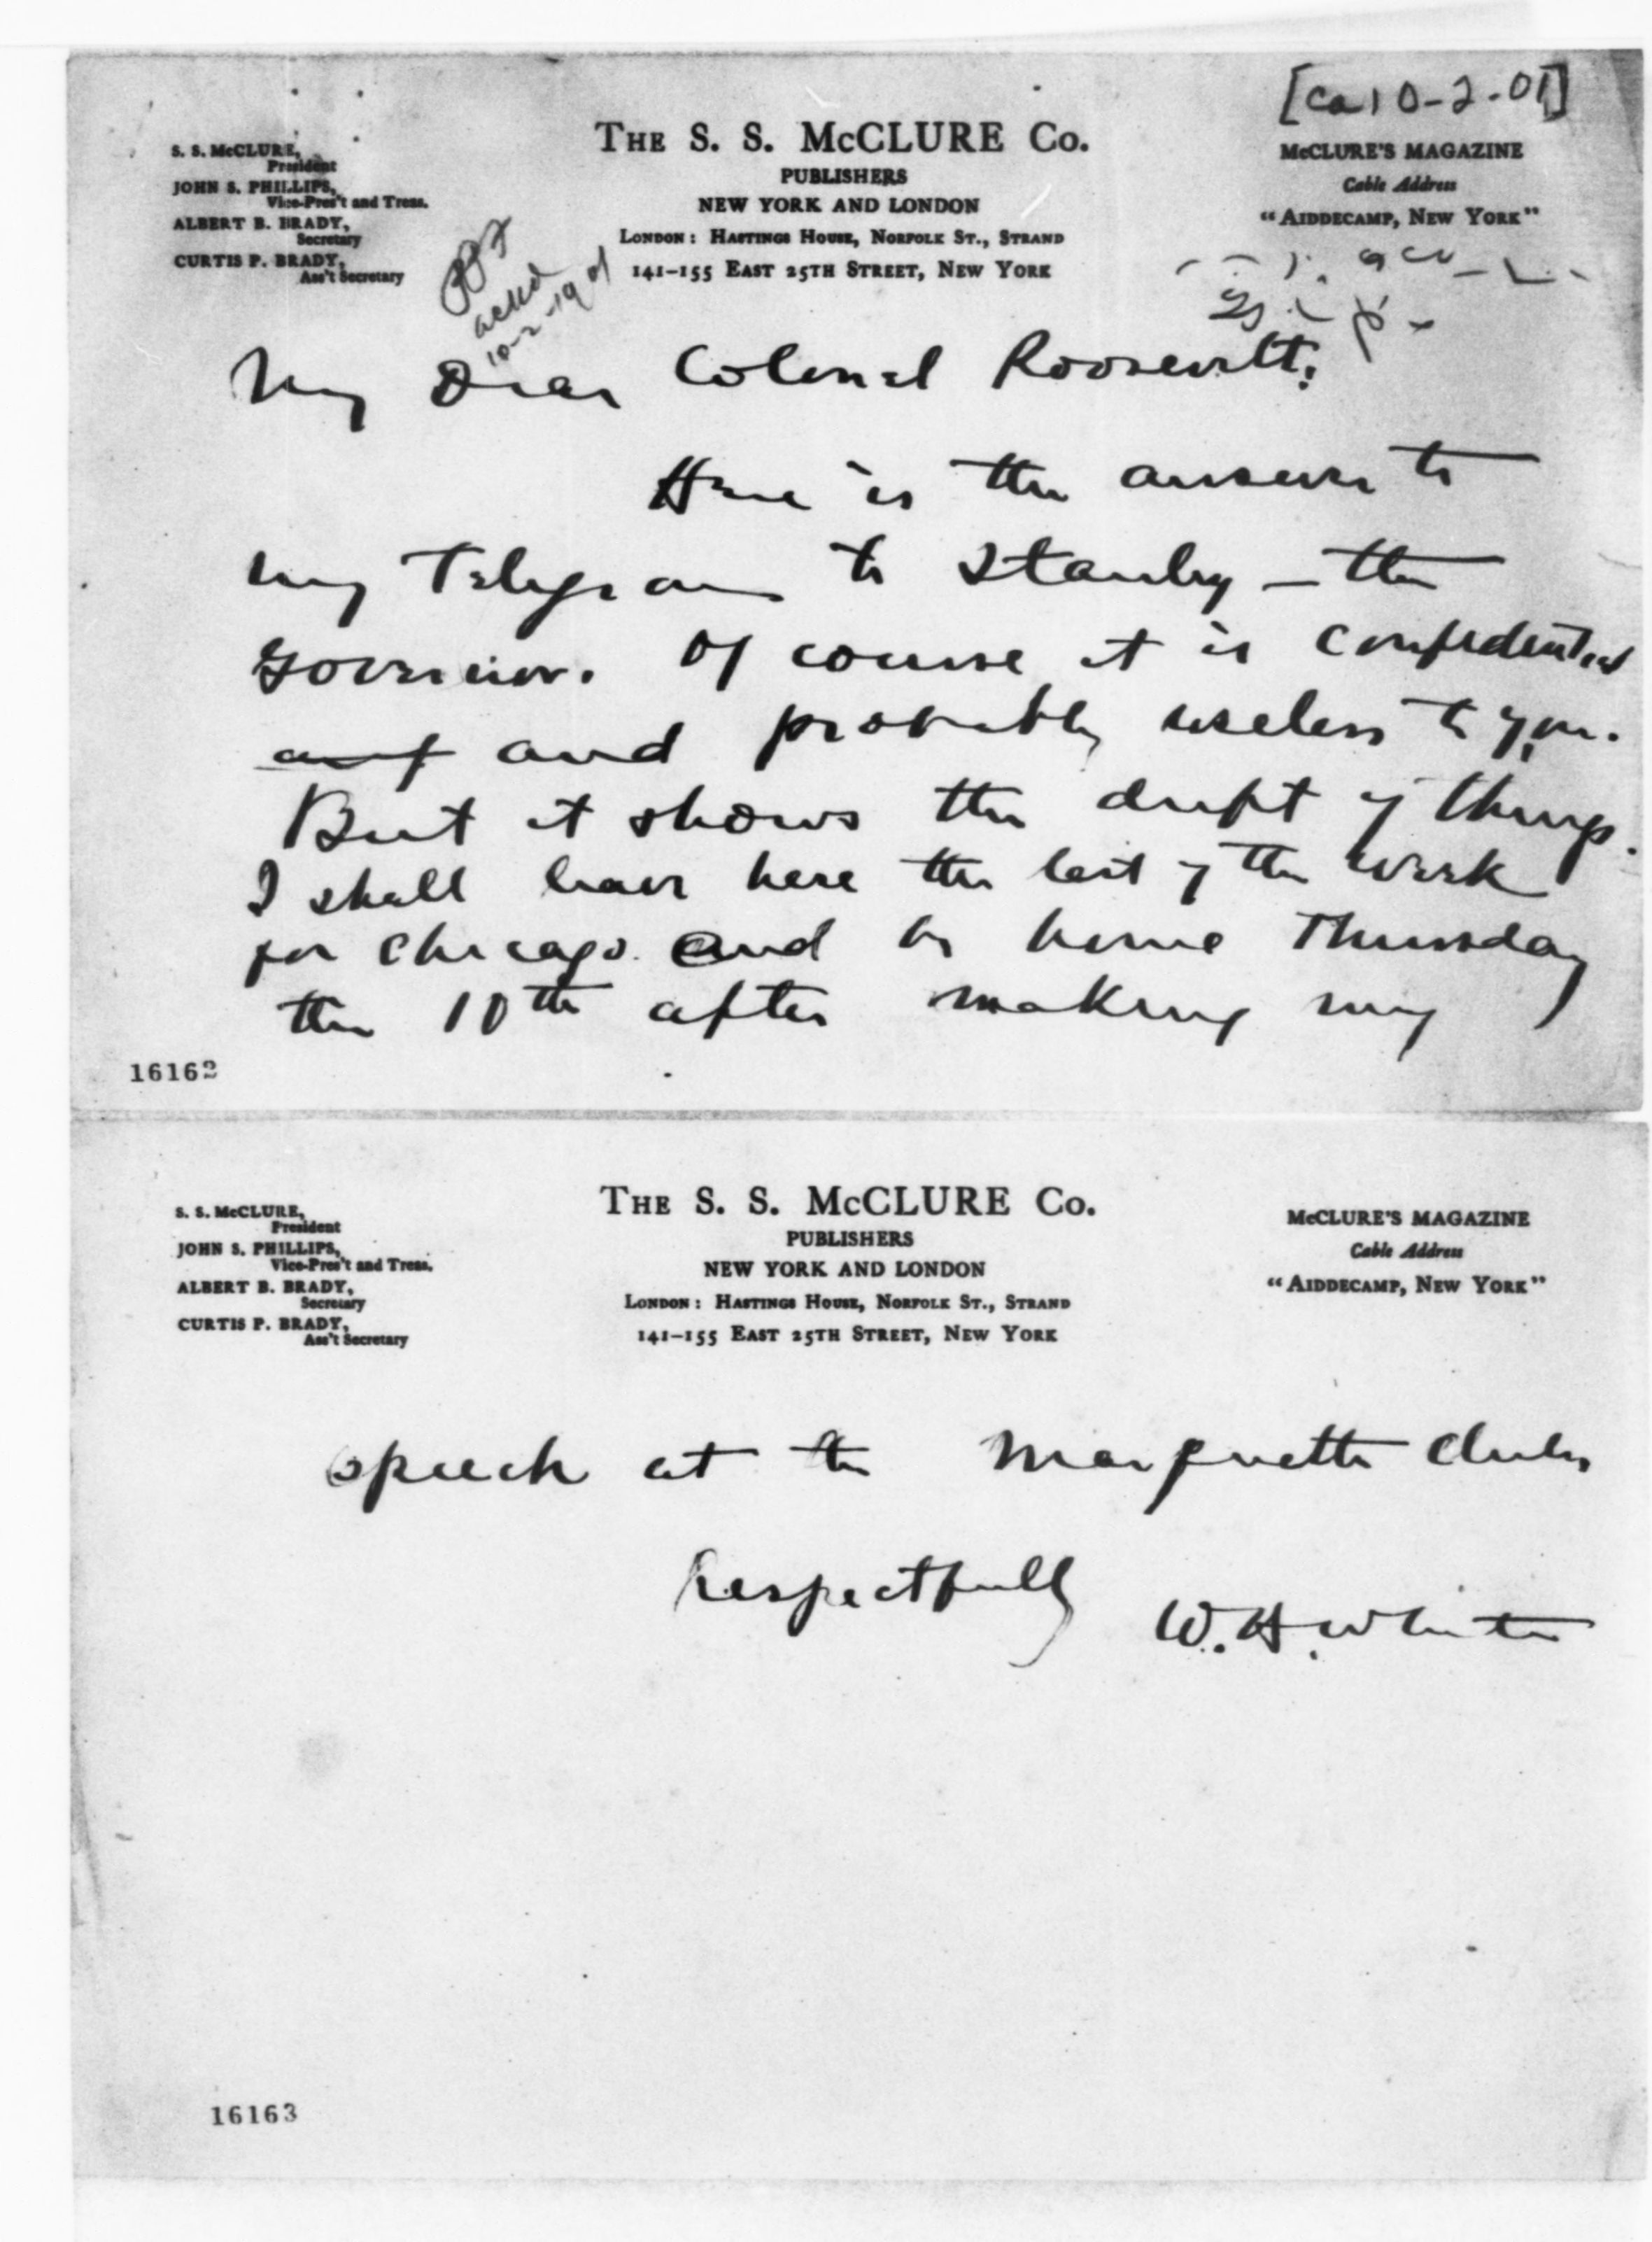 [ca 10-2-01]
S. S. McCLURE,
President
JOHN S. PHILLIPS,
Vice-Pres't and Treas.
ALBERT B. BRADY,
Secretary
CURTIS P. BRADY,
Ass't Secretary
THE S. S. McCLURE Co.
PUBLISHERS
NEW YORK AND LONDON
LONDON: HASTINGS HOUSE, NORFOLK ST., STRAND
141-155 EAST 25TH STREET, NEW YORK
McCLURE'S MAGAZINE
Cable Address
"AIDDECAMP, NEW YORK"
PPF
ackd
10-2-1901
My Dear Colonel Roosevelt:
Here is the answer to
my Telegram to Stanley – the
governor. Of course it is confidential
and probably useless to you.
But it shows the drift of things.
I shall leave here the last of the week
for Chicago. And be home Thursday
the 10th after making my
16162
S. S. McCLURE,
President
JOHN S. PHILLIPS,
Vice-Pres't and Treas.
ALBERT B. BRADY,
Secretary
CURTIS P. BRADY,
Ass't Secretary
THE S. S. McCLURE Co.
PUBLISHERS
NEW YORK AND LONDON
LONDON: HASTINGS HOUSE, NORFOLK ST., STRAND
141-155 EAST 25TH STREET, NEW YORK
McCLURE'S MAGAZINE
Cable Address
"AIDDECAMP, NEW YORK"
speech at the Marquette Club,
Respectfully
W. A. White
16163